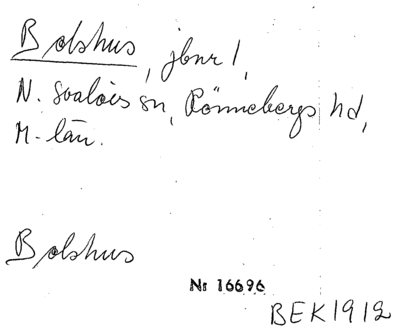 Bolshus, jbnr 1,
N. Svalövs sn, Rönnebergs hd,
M. län.
Bolshus
Nr 16696
BEK1912